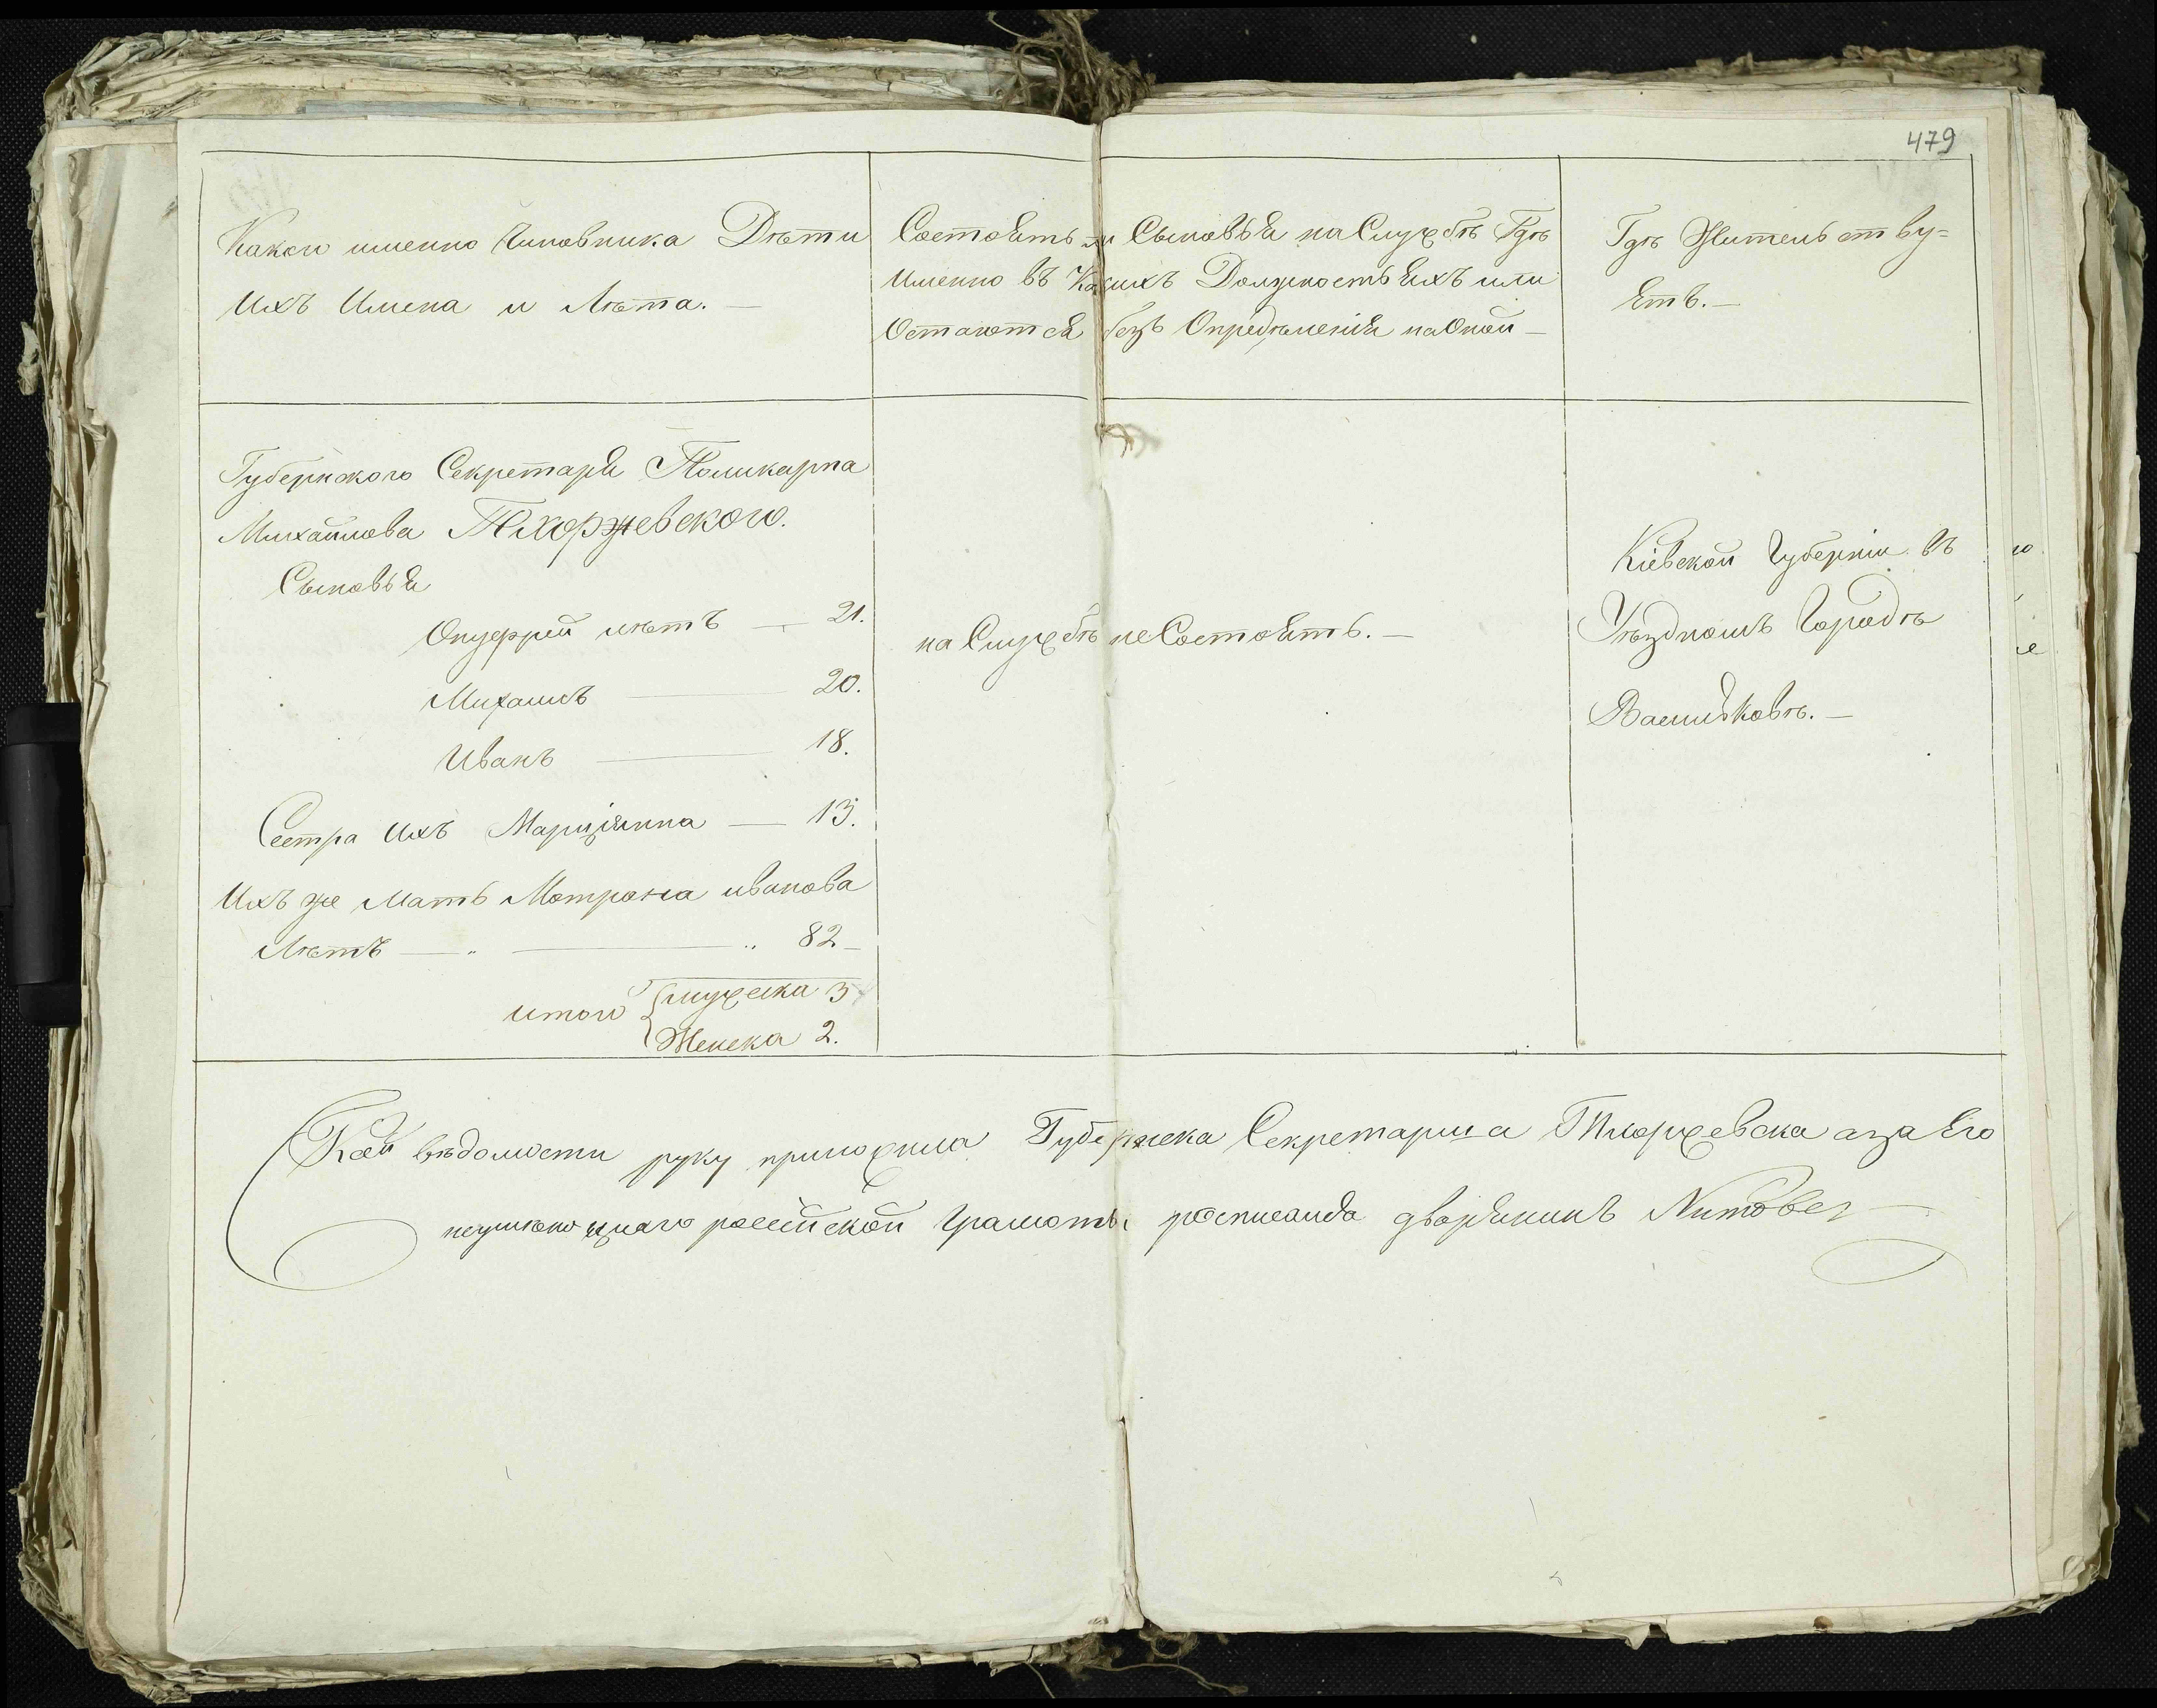 479
Какои именно Чиновника Дѣти
Ихъ Имена и Лѣта. —
Состоятъ ли Сыновья на Службѣ Гдѣ
Именно въ Какихъ Должностьяхъ или
Остаются безъ Определенія на Оной —
Гдѣ Жительству=
етъ. —
Губернского Секретаря Поликарпа
Михайлова Тхоржевского.
Сыновья
Онуфрий лѣтъ — 21.
Михаилъ — 20.
Иванъ — 18.
Сестра Ихъ Марціянна — 13.
Ихъ же Мать Мотрона иванова
Лѣтъ — 82 —
итого { мужеска 3
Женска 2.
на Службѣ не Состоятъ. —
Кіевской Губерніи въ
Уѣздномъ Городѣ
Василькове. —
К сей вѣдомости руку приложила Губернска Секретарша Тхоржевска а за Его
неумѣющаго российской грамоты росписался дворянинъ